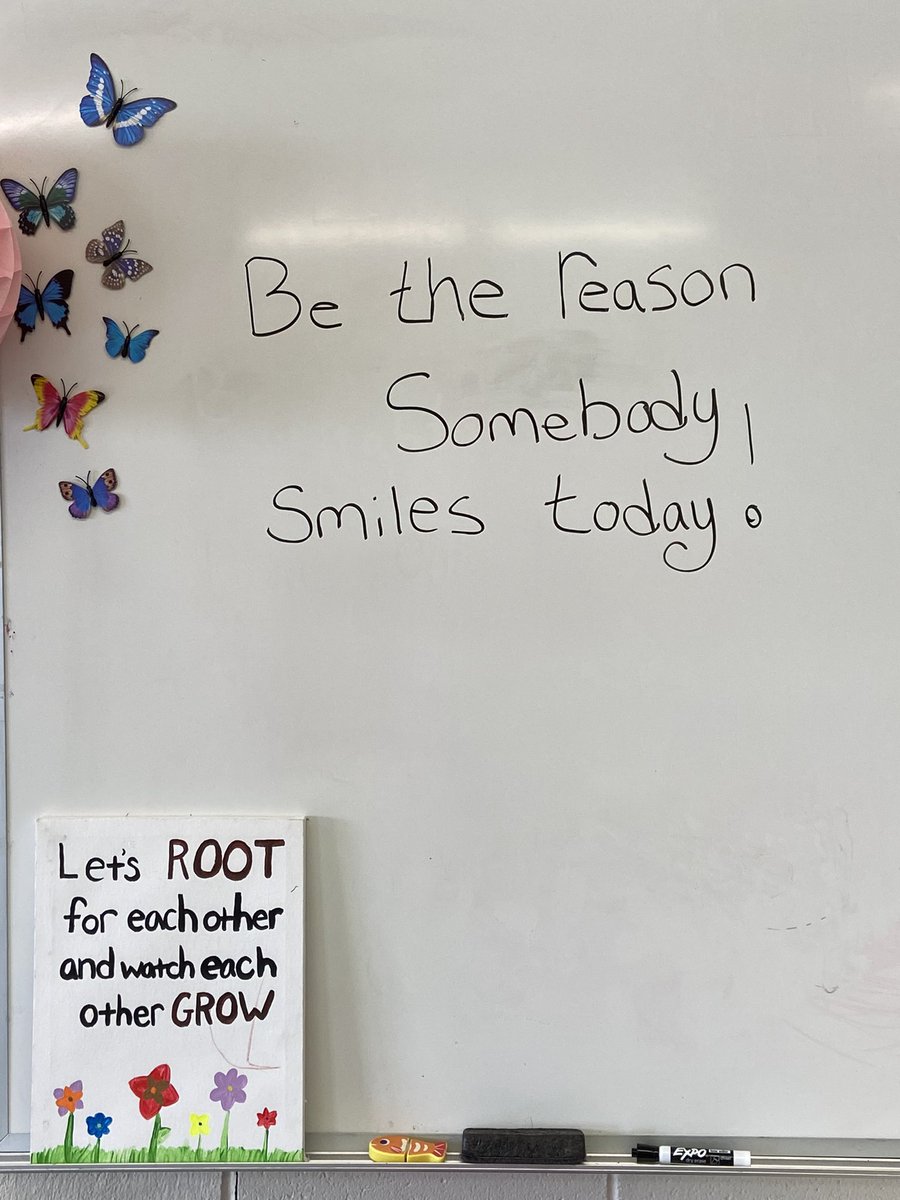 Be the reason
Somebody,
Smiles today.
Let's ROOT
for each other
and watch each
other GROW
EXPO